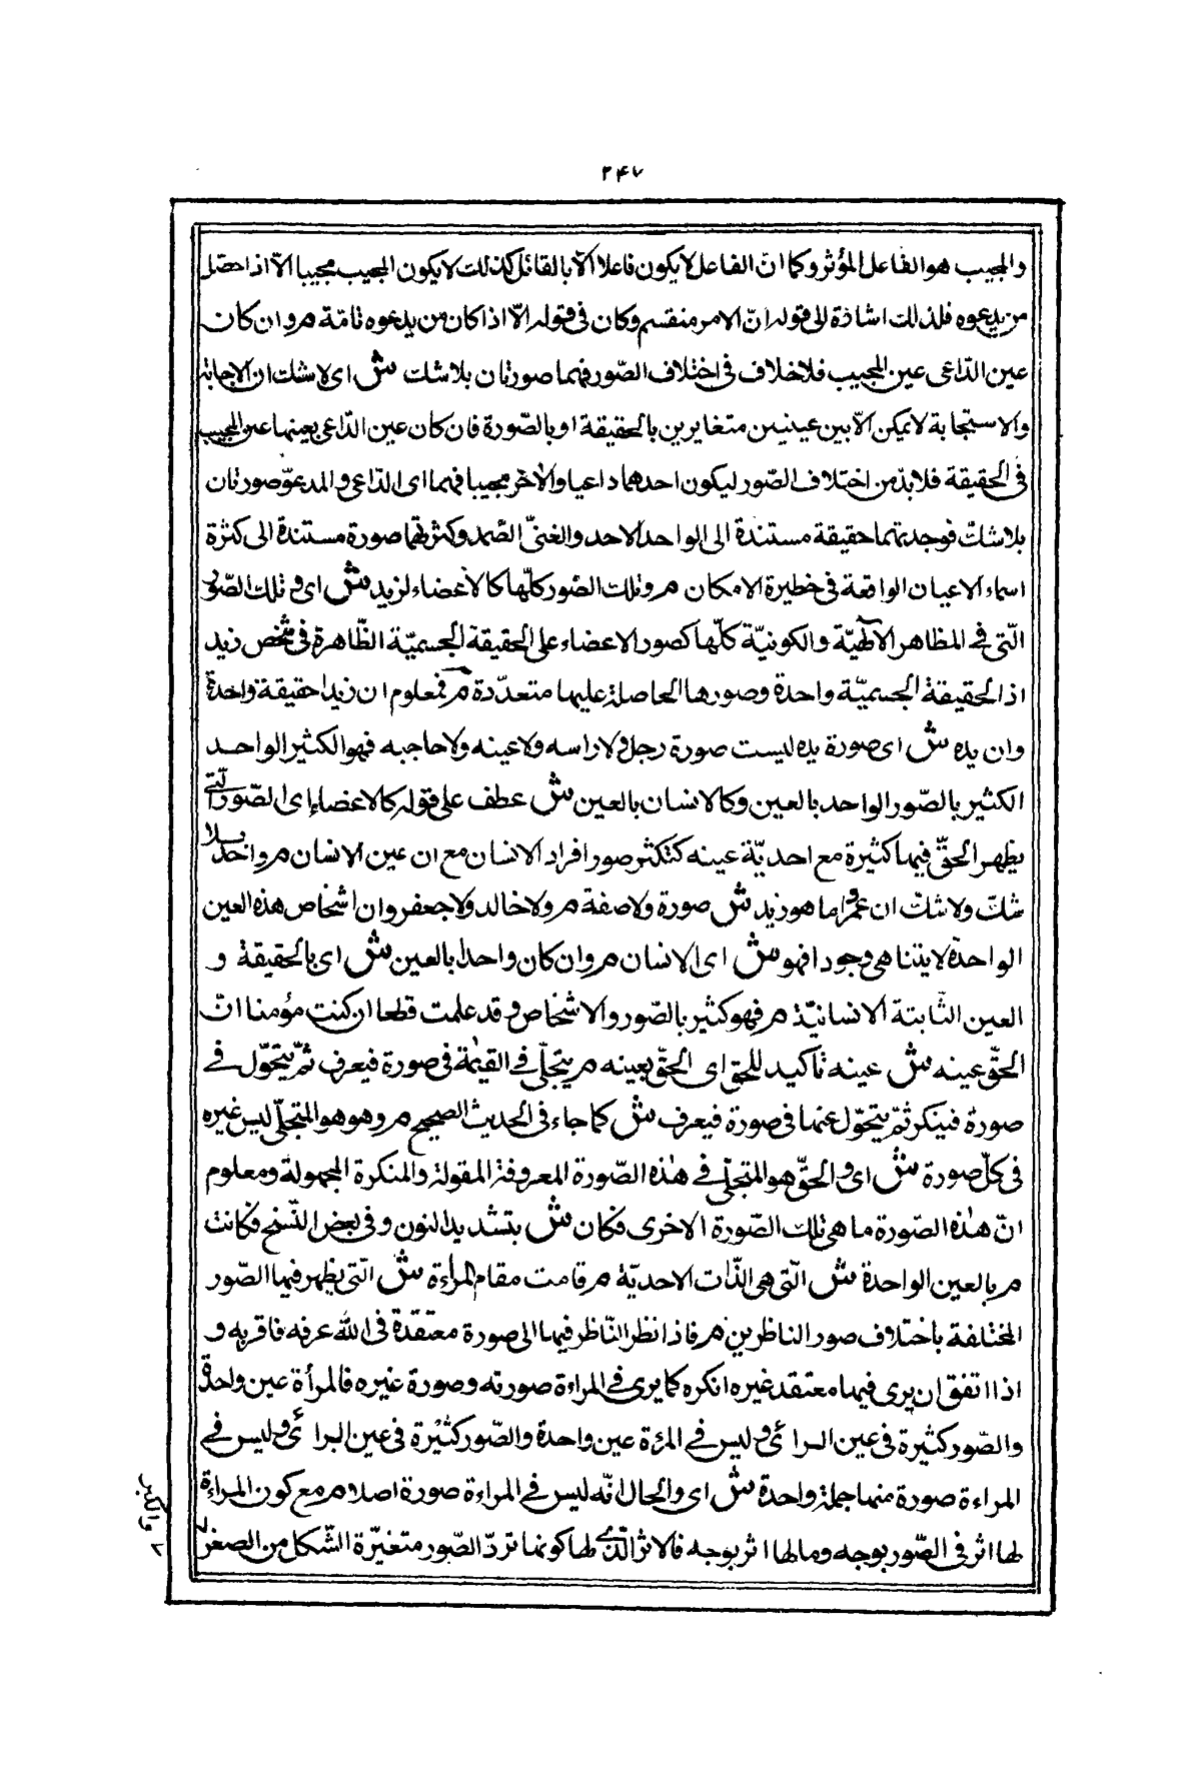 ۲۴۷
والمجيب هو الفاعل المؤثر وكما انّ الفاعل لا يكون فاعلا الّا بالقابل كذلك لا يكون المجيب مجيبا الّا اذا حصل
من يدعوه فلذلك اشارة الى قوله انّ الامر منقسم وكان فى قوله الّا اذا كان من يدعوه تامّة م وان كان
عين الدّاعى عين المجيب فلا خلاف فى اختلاف الصّور فهما صورتان بلا شك ش اى لا شك ان الاجابة
والاستجابة لا يمكن الّا بين عينين متغايرين بالحقيقة او بالصّورة فان كان عين الدّاعى بعينها عين المجيب
فى الحقيقة فلا بدّ من اختلاف الصّور ليكون احدهما داعيا والآخر مجيبا فهما اى الدّاعى والمدعوّ صورتان
بلا شك فوحدتهما حقيقة مستندة الى الواحد الاحد والغنىّ الصّمد وكثرتهما صورة مستندة الى كثرة
اسماء الاعيان الواقعة فى خطيرة الامكان م وتلك الصّور كلّها كالاعضاء لزيد ش اى و تلك الصّور
الّتى فى المظاهر الالٰهيّة والكونيّة كلّها كصور الاعضاء على الحقيقة الجسميّة الظّاهرة فى شخص زيد
اذ الحقيقة الجسميّة واحدة وصورها الحاصلة عليها متعدّدة م فمعلوم ان زيدا حقيقة واحدة
وان يده ش اى صورة يده ليست صورة رجله ولا راسه ولا عينه ولا حاجبه فهو الكثير الواحد
الكثير بالصّور الواحد بالعين وكالانسان بالعين ش عطف على قوله كالاعضاء اى الصّور الّتى
يظهر الحقّ فيها كثيرة مع احديّة عينه كتكثر صور افراد الانسان مع ان عين الانسان م واحد بلا
شك ولا شك ان عمرا ما هو زيد ش صورة ولا صفة م ولا خالد ولا جعفر وان اشخاص هذه العين
الواحدة لا يتناهى وجودا فهو ش اى الانسان م وان كان واحدا بالعين ش اى بالحقيقة و
العين الثّابتة الانسانيّة م فهو كثير بالصّور والاشخاص وقد علمت قطعا ان كنت مؤمنا انّ
الحقّ عينه ش عينه تاكيد للحق اى الحقّ بعينه م يتجلّى فى القيٰمة فى صورة فيعرف ثمّ يتحوّل فى
صورة فينكر ثمّ يتحوّل عنها فى صورة فيعرف ش كما جاء فى الحديث الصحيح م وهو هو المتجلّى ليس غيره
فى كلّ صورة ش اى والحقّ هو المتجلّى فى هذه الصّورة المعروفة المقولة والمنكرة المجهولة ومعلوم
انّ هذه الصّورة ما هى تلك الصّورة الاخرى فكان ش بتشديد النون وفى بعض النّسخ فكانت
م بالعين الواحدة ش الّتى هى الذّات الاحديّة م قامت مقام المراءة ش الّتى يظهر فيها الصّور
المختلفة باختلاف صور الناظرين م فاذا نظر النّاظر فيها الى صورة معتقدة فى الله عرفه فاقر به و
اذا اتفق ان يرى فيها معتقد غيره انكره كما يرى فى المراءة صورته وصورة غيره فالمرأة عين واحدة
والصّور كثيرة فى عين الرائى وليس فى المرءة عين واحدة والصّور كثيرة فى عين الرائى وليس فى
المراءة صورة منها جملة واحدة ش اى والحال انّه ليس فى المراءة صورة اصلا م مع كون المراءة
لها اثر فى الصّور بوجه وما لها اثر بوجه فالاثر الّذى لها كونها تردّ الصّور متغيّرة الشّكل من الصغر
والكبر